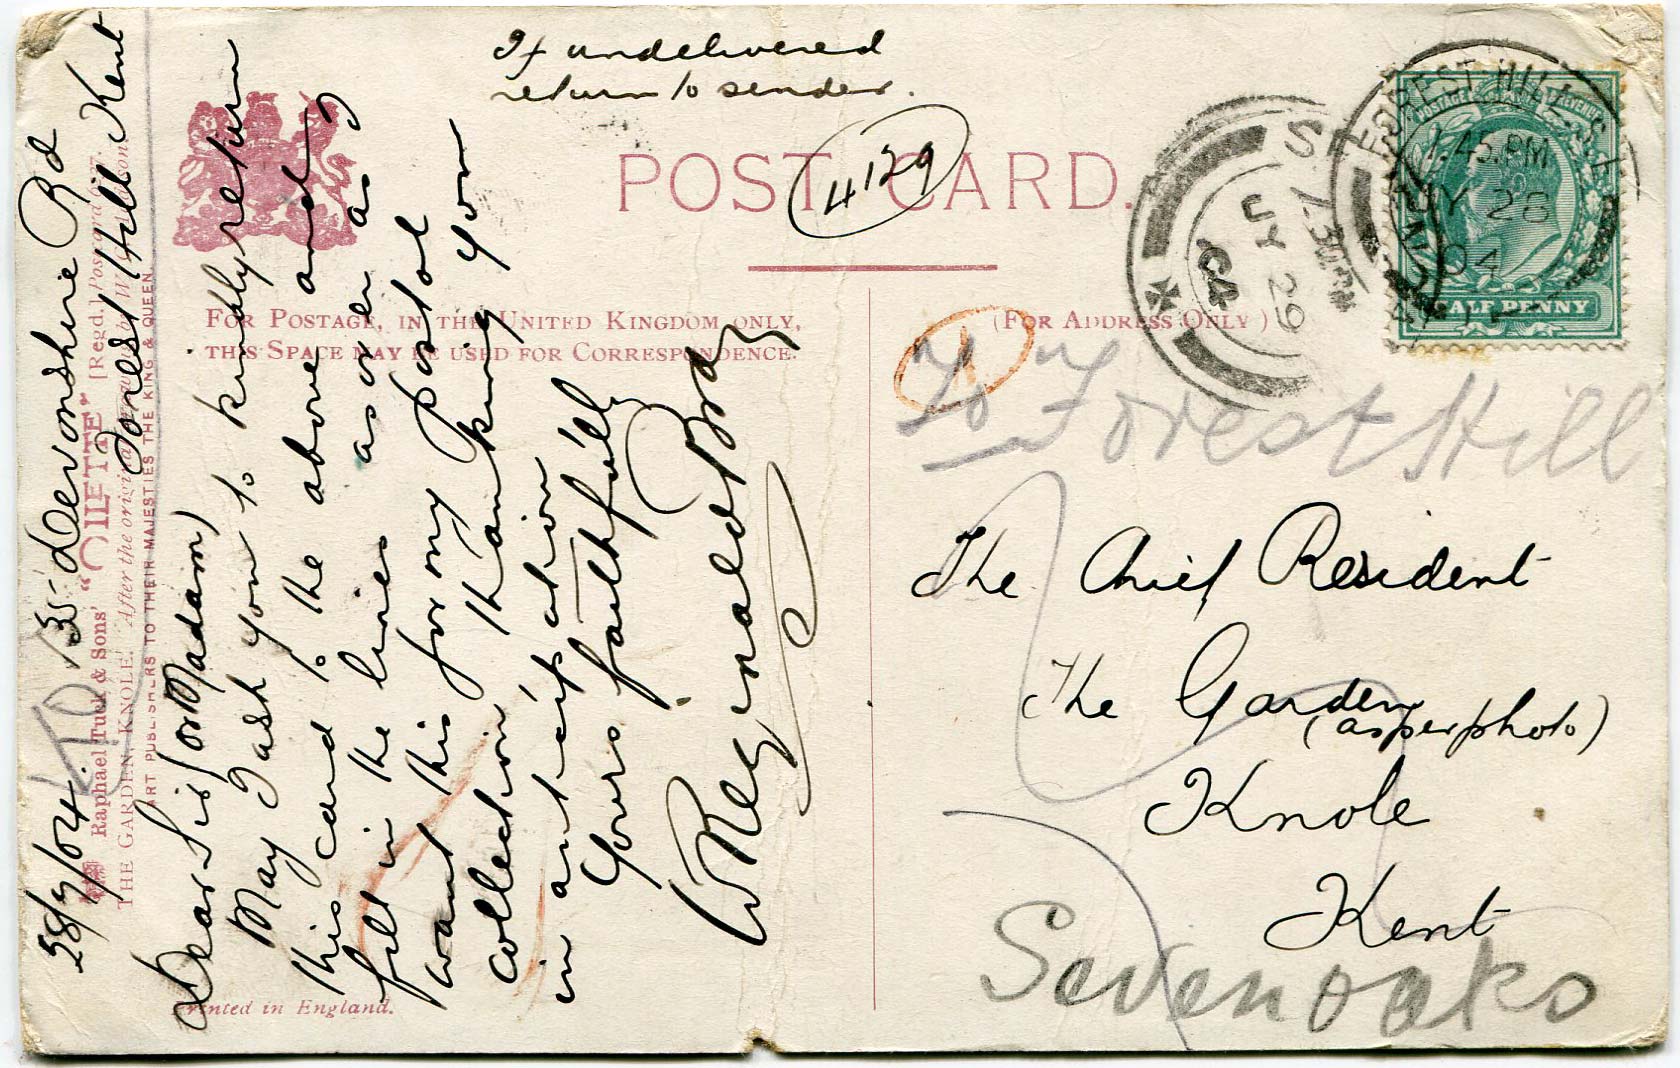 If undelivered
return to sender.
POST CARD.
4129
FOR POSTAGE, IN THE UNITED KINGDOM ONLY,
THIS SPACE MAY BE USED FOR CORRESPONDENCE.
(FOR ADDRESS ONLY)
28/7/04. 135 Devonshire Rd
Forest Hill Kent
Dear Sir (or Madam)
May I ask you to kindly return
this card to the above and
fill in the lines as over as
I want this for my Postal
collection thanking you
in anticipation
Yours faithfully
W Reginald Bray
Raphael Tuck & Sons' "OILETTE" [Regd.] Postcard
THE GARDEN, KNOLE. After the original
ART PUBLISHERS TO THEIR MAJESTIES THE KING & QUEEN.
Printed in England.
FOREST HILL S.E.
1.45.PM
JY 28
04
7.30PM
JY 29
04
POSTAGE REVENUE
HALF PENNY
1
To Forest Hill
The Chief Resident
The Garden
(as per photo)
Knole
Kent
Sevenoaks